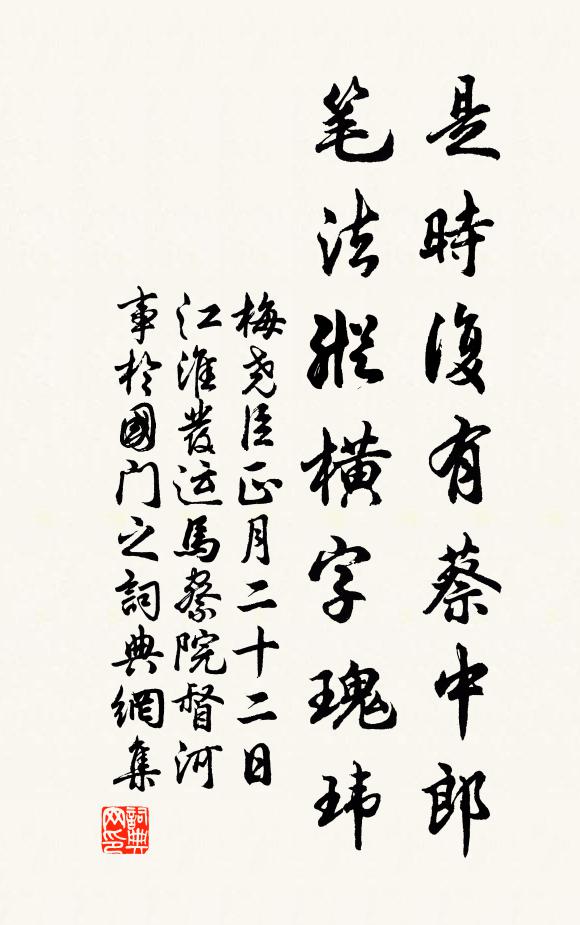 是時復有蔡中郎
笔法縱橫字瑰玮
梅尧臣正月二十二日
江淮發运馬察院督河
事於國门之詞典網集
詞典网印